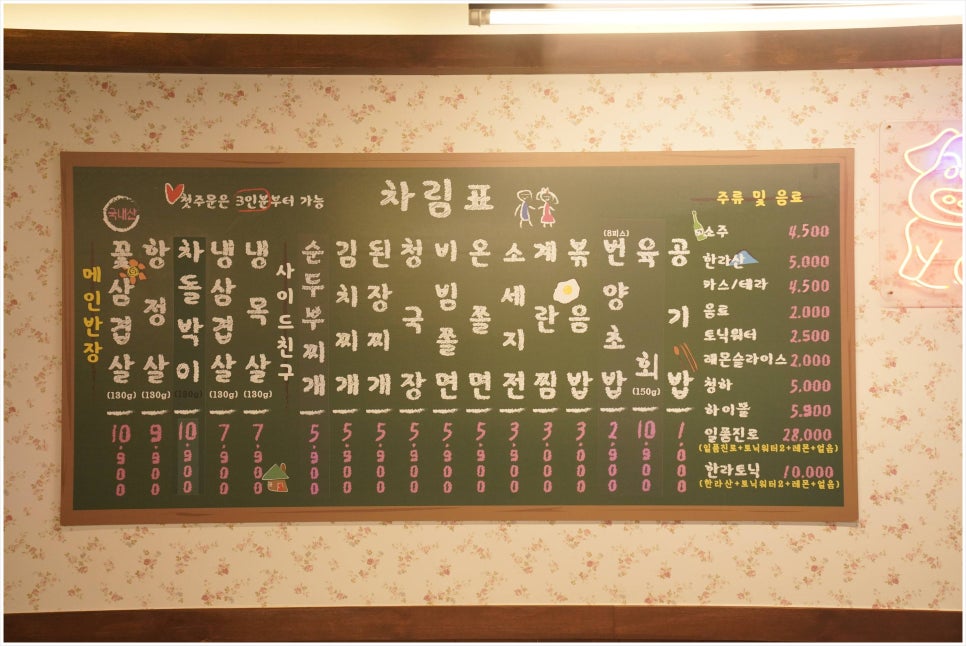 차림표
국내산
첫주문은 3인분부터 가능
메인반장
꽃삼겹살 (130g) 10.900
항정살 (130g) 9.900
차돌박이 10.900
냉삼겹살 (130g) 7.900
냉목살 (130g) 7.900
사이드친구
순두부찌개 5.900
김치찌개 5.900
된장찌개 5.900
청국장 5.900
비빔쫄면 5.900
온쫄면 5.900
소세지전 3.000
계란찜 3.000
볶음밥 3.000
(8피스) 번양초밥
육회 (150g) 10.900
공기밥 1.000
주류 및 음료
소주 4.500
한라산 5.000
카스/테라 4.500
음료 2.000
토닉워터 2.500
레몬슬라이스 2,000
청하 5,000
하이볼 5.900
일품진로 28,000
(일품진로+토닉워터2+레몬+얼음)
한라토닉 10,000
(한라산+토닉워터2+레몬+얼음)